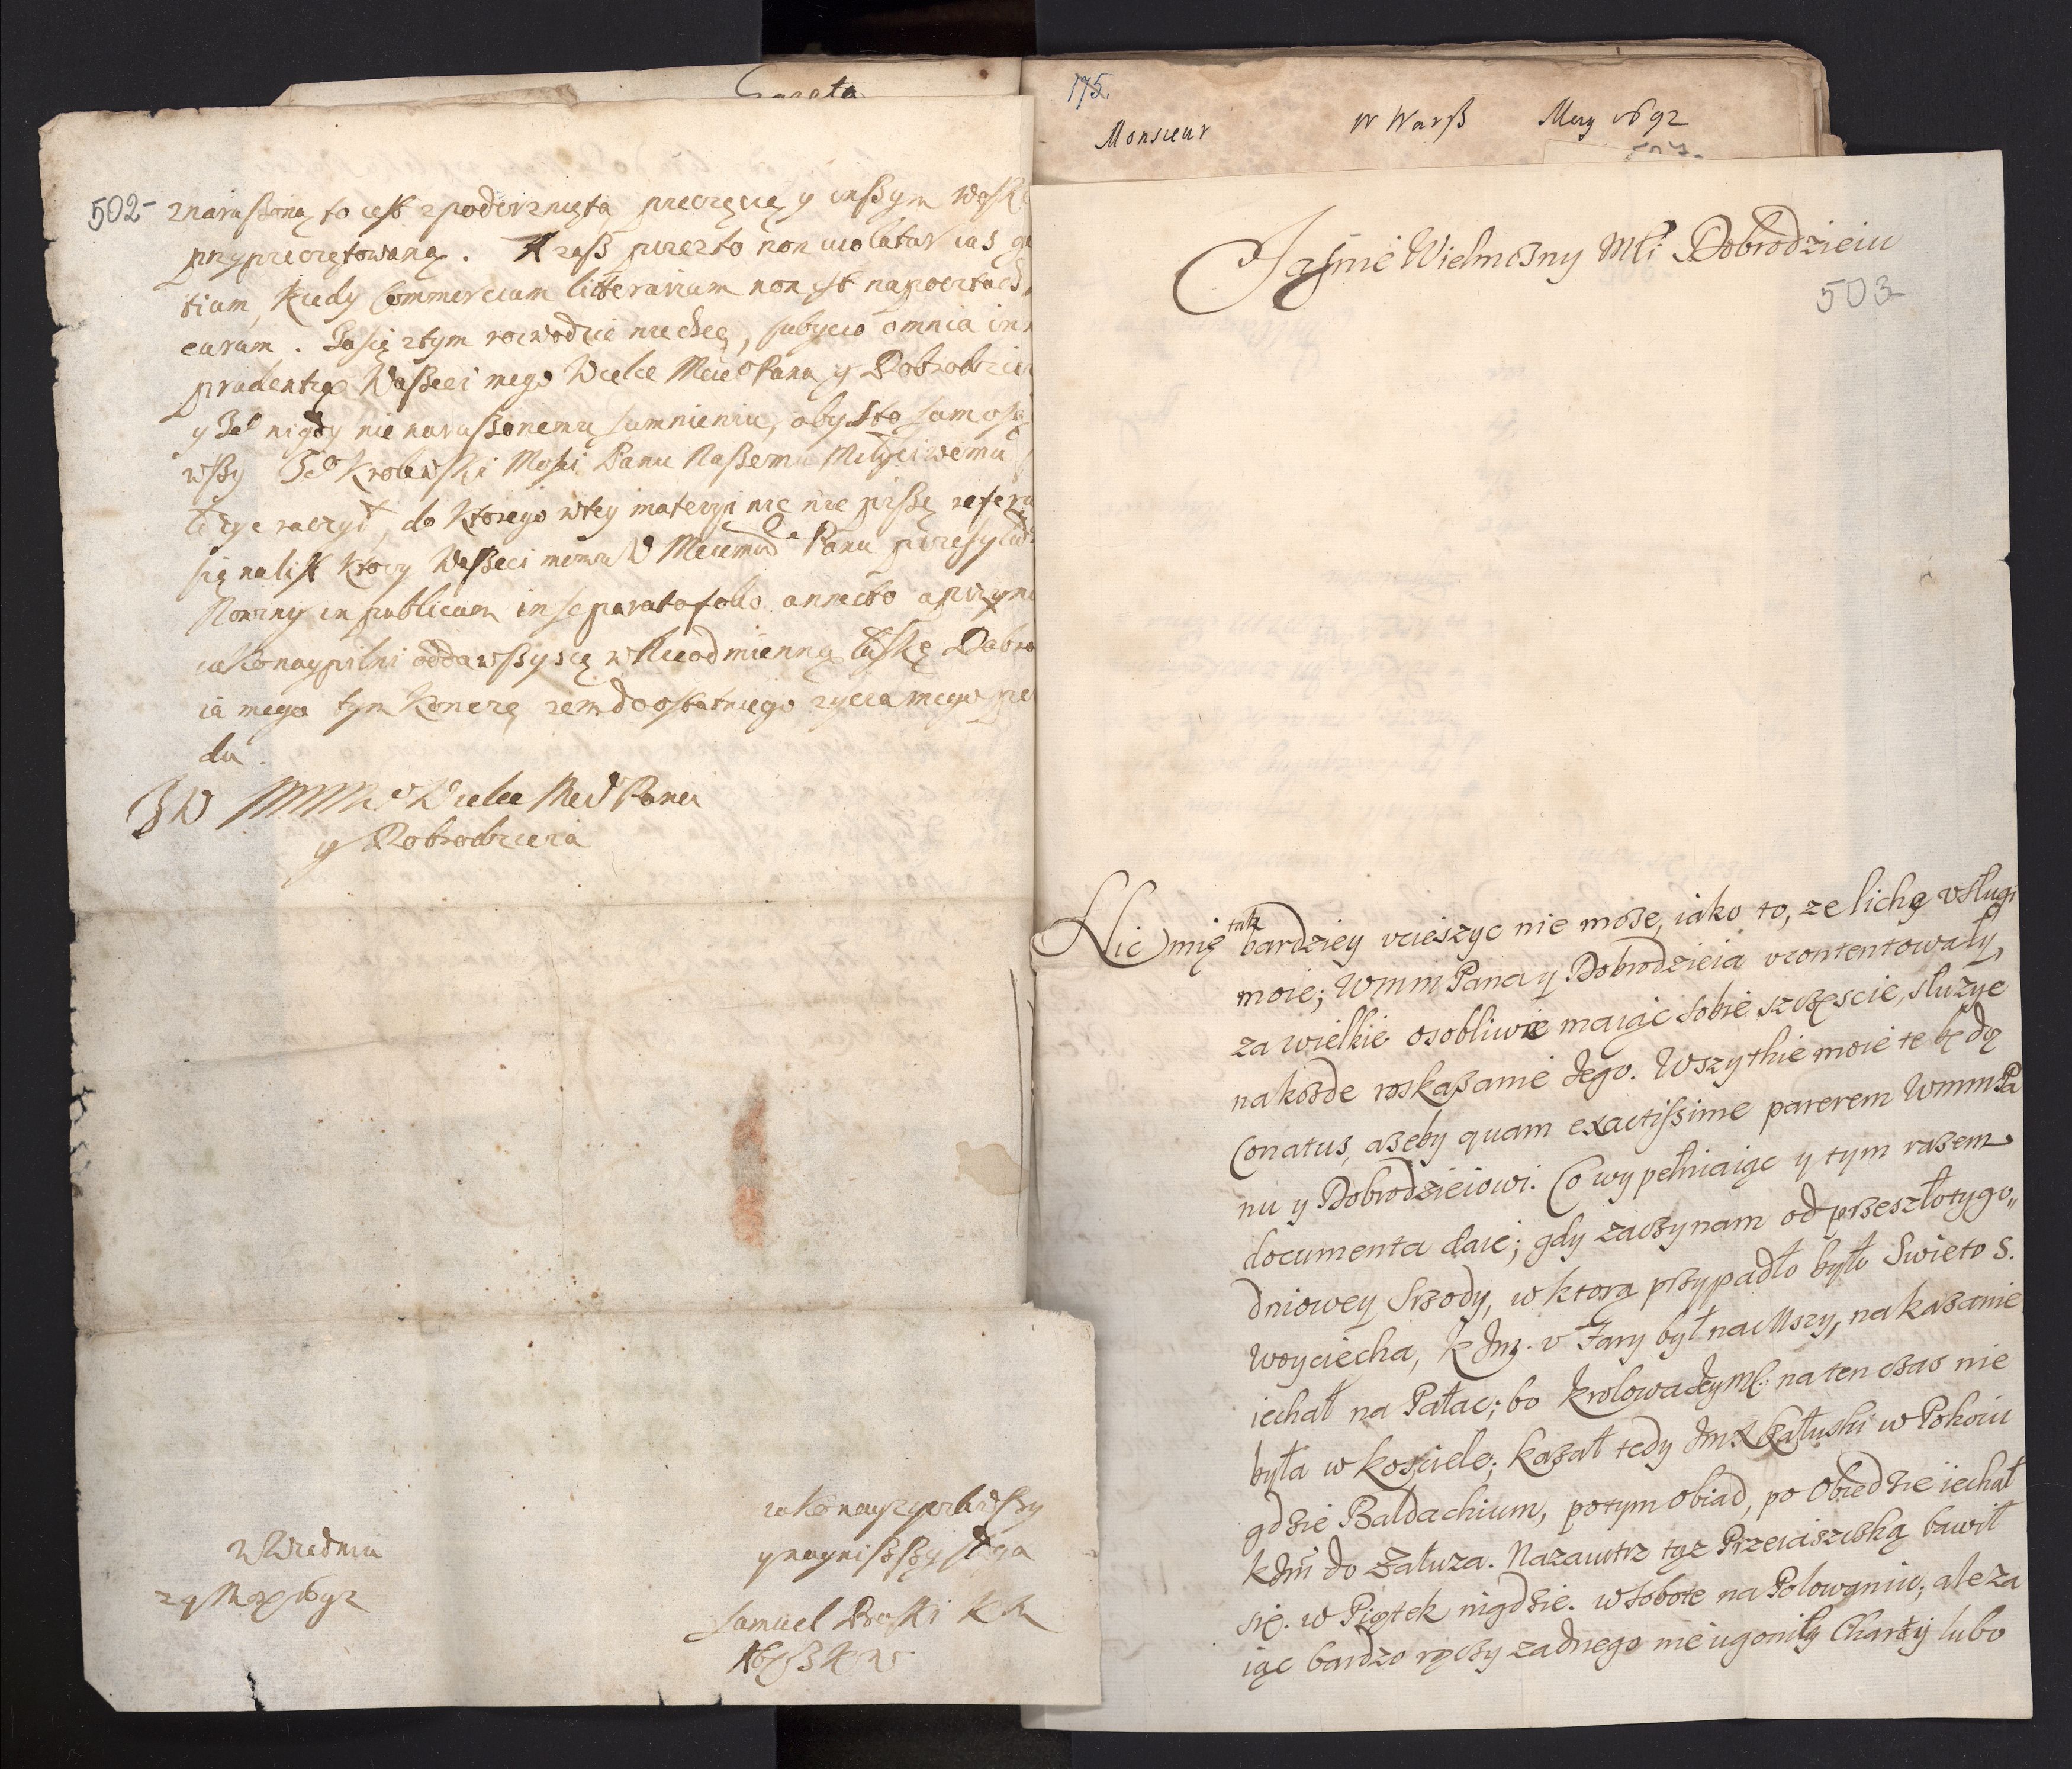 Gazeta
502-
znarußoną to iest zpoderzniętą pieczęcią y inßym woskie
przypieczętowaną. A zaß przez to non uiolatur ius ge
tium, kiedy Commercium litterarium non est na pocztach
curum. Ia się z tym rozwodzić nie chcę, subycio omnia in
prudentią Waßeci mego Wielce Mciego Pana y Dobrodzieia
y Je nigdy nie narußonemu sumnieniu, abyś to samo
wßy Jeo Krolewski Mości Panu Naßemu Miłościwemu
do ktorego w tey materyi nic nie pißę refer
się na list ktory Waßeci memu W Mciemu Panu przesyłam
Nowiny in publicum in separato folio annecto a przy
iako naypilni oddawßy się w Nieodmienną łaskę Dobro
ia mego tym koncze zem do ostatniego zycia mego
du
JW MMo Wielce Mci Pana
y Dobrodzieia
iako nayzyczliwßy
y nayniżßy sługa
Samuel Proski K K
z Wiednia
29 May 1692
175.
Monsieur
W Warß
May 1692
507-
Jaśnie Wielmożny Mści Dobrodzieiu
503
Nic mię tak bardziey vcieszyc nie może, iako to, ze lichę vsługi
moie; Wmm Pana y Dobrodzieia vcontentowały,
za wielkie osobliwie maiąc sobie szczęscie, służyc
na kożde roskazanie Jego. Wszytkie moie te będą
Conatus, azeby quam exactißime parerem Wmm Pa
nu y Dobrodzieiowi. Co wypełniaiąc y tym razem
documenta daię; gdy zaczynam od przeszłotygo„
dniowey Srzody, w ktorą przypadło było Swieto S.
Woyciecha, K Jm. v Fary był na Mszy, na kazanie
iechał na Pałac; bo Krolowa Jeymć. na ten czas nie
była w kosciele; kazał tedy Jmx Załuski w Pokoiu
gdzie Baldachium, potym obiad, po Obiedzie iechał
K Jm do Załuza. Nazaiutrz tyz Przeiaszczką bawił
się. w Piątek nigdzie. w sobotę na Polowaniu; ale za
iąc bardzo rączy zadnego nie ugoniły Charty lubo